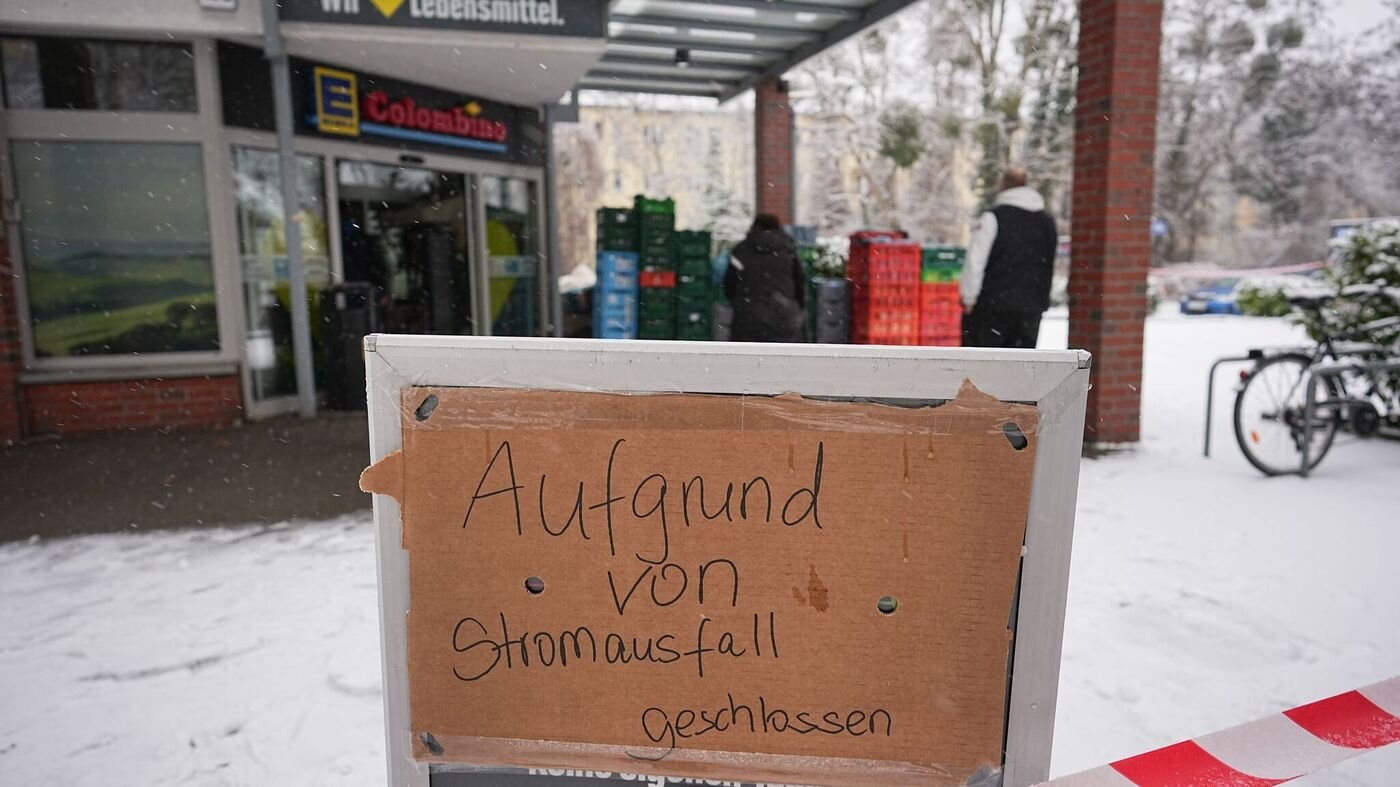 Wir Lebensmittel.
E
Colombino
Aufgrund
von
Stromausfall
geschlossen